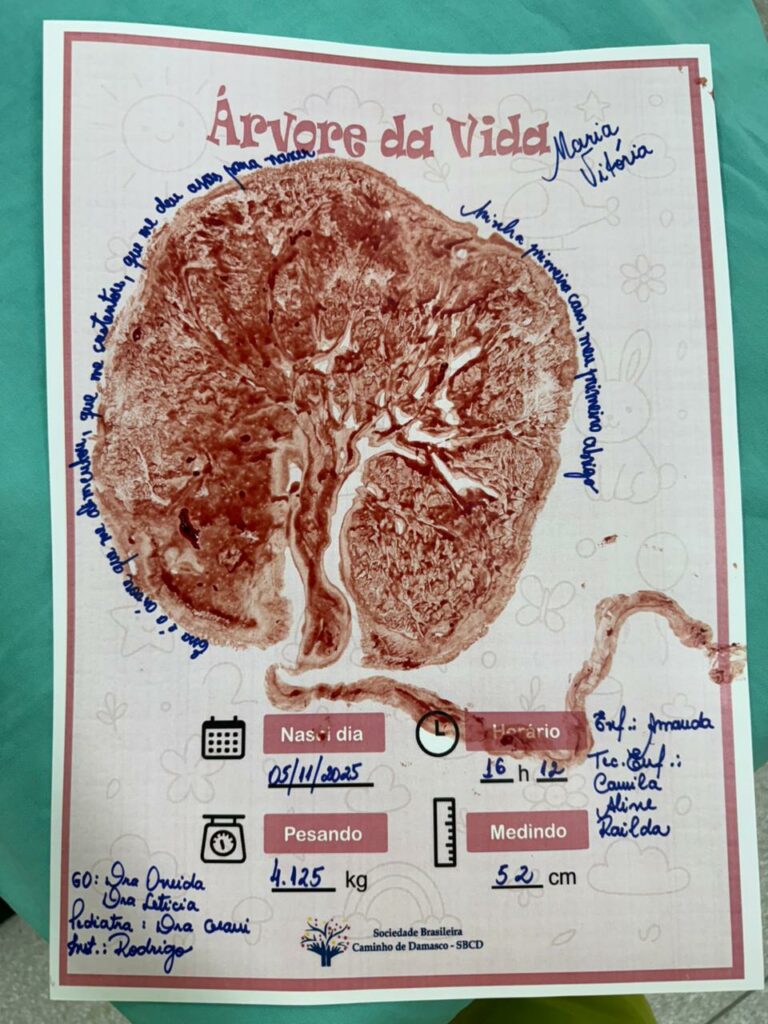 Árvore da Vida
Maria
Vitória
Minha primeira casa, meu primeiro abrigo
Essa é a árvore que me alimentou, que me sustentou, que me deu asas para nascer
Nasci dia
05/11/2025
Horário
16 h 12
Pesando
4.125 kg
Medindo
52 cm
Enf.: Amanda
Tec. Enf.:
Camila
Aline
Railda
GO: Dra Oneida
Dra Letícia
Pediatra: Dra
Inst.: Rodrigo
Sociedade Brasileira
Caminho de Damasco - SBCD